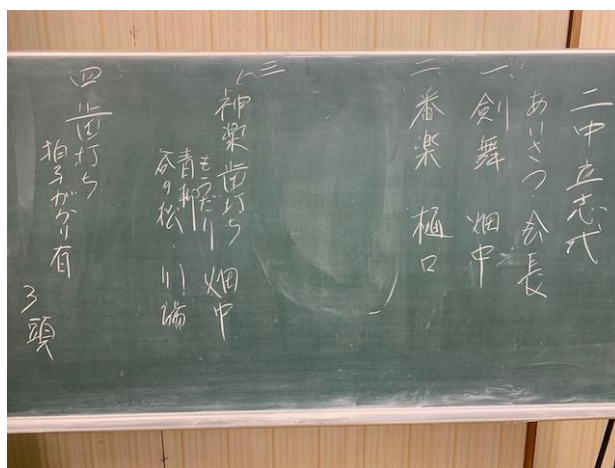 二中立志式
あいさつ 会長
一、剣舞 畑中
二、番楽 樋口
三、神楽 歯打ち 畑中
青柳
谷の松・川
四 歯打ち
拍子がかり有
3頭